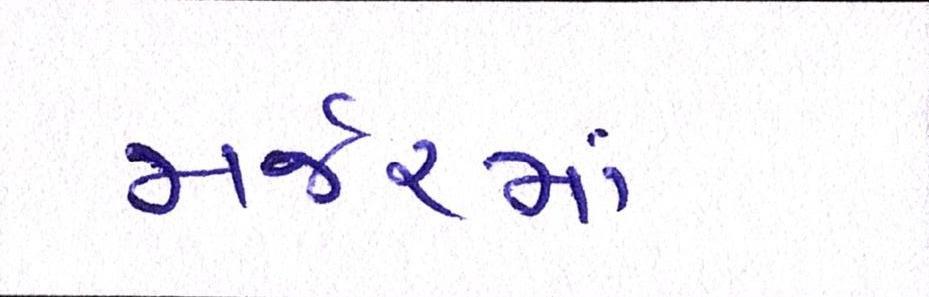 મર્જરમાં